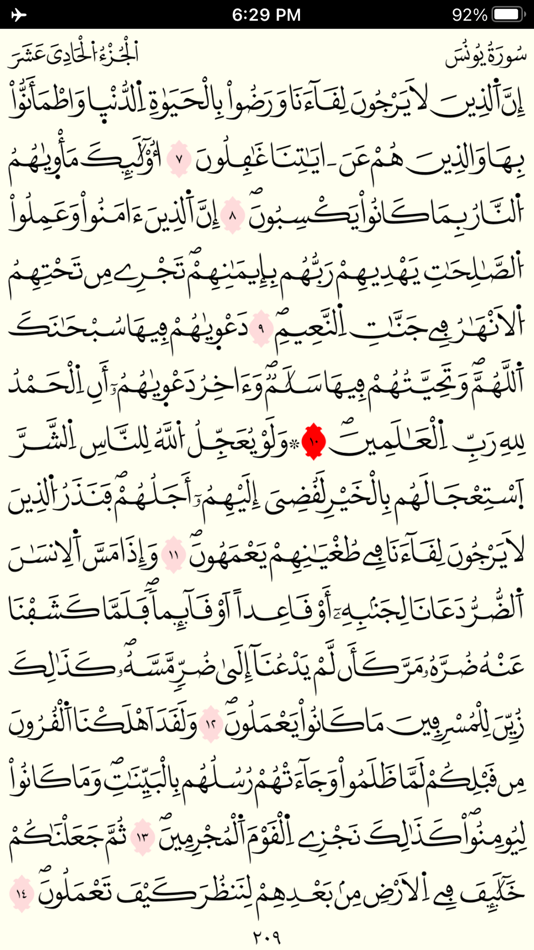 6:29 PM
92%
سُورَةُ يُونُسَ
اَلْجُزْءُ الْحَادِيَ عَشَرَ
إِنَّ اَلذِينَ لَا يَرْجُونَ لِقَآءَنَا وَرَضُواْ بِالْحَيَوٰةِ اِلدُّنْي۪ا وَاطْمَأَنُّواْ
بِهَا وَالذِينَ هُمْ عَنَ ـ ايَٰتِنَا غَٰفِلُونَ ٧ أُوْلَٰٓئِكَ مَأْو۪يٰهُمُ
اُلنَّارُ بِمَا كَانُواْ يَكْسِبُونَۖ ٨ إِنَّ اَلذِينَ ءَامَنُواْ وَعَمِلُواْ
اُلصَّٰلِحَٰتِ يَهْدِيهِمْ رَبُّهُم بِإِيمَٰنِهِمْۖ تَجْرِے مِن تَحْتِهِمُ
اُلَانْهَٰرُ فِے جَنَّٰتِ اِلنَّعِيمِۖ ٩ دَعْو۪يٰهُمْ فِيهَا سُبْحَٰنَكَ
اَللَّهُمَّۖ وَتَحِيَّتُهُمْ فِيهَا سَلَٰمٞۖ وَءَاخِرُ دَعْو۪يٰهُمُۥٓ أَنِ اِلْحَمْدُ
لِلهِ رَبِّ اِلْعَٰلَمِينَۖ ١٠ ۞ وَلَوْ يُعَجِّلُ اُللَّهُ لِلنَّاسِ اِلشَّرَّ
اَسْتِعْجَالَهُم بِالْخَيْرِ لَقُضِيَ إِلَيْهِمُۥٓ أَجَلُهُمْۖ فَنَذَرُ اُلذِينَ
لَا يَرْجُونَ لِقَآءَنَا فِے طُغْيَٰنِهِمْ يَعْمَهُونَۖ ١١ وَإِذَا مَسَّ اَلِانسَٰنَ
اَلضُّرُّ دَعَانَا لِجَنۢبِهِۦٓ أَوْ قَاعِداً اَوْ قَآئِماٗۖ فَلَمَّا كَشَفْنَا
عَنْهُ ضُرَّهُۥ مَرَّ كَأَن لَّمْ يَدْعُنَآ إِلَىٰ ضُرّٖ مَّسَّهُۥۖ كَذَٰلِكَ
زُيِّنَ لِلْمُسْرِفِينَ مَا كَانُواْ يَعْمَلُونَۖ ١٢ وَلَقَدَ اَهْلَكْنَا اَلْقُرُونَ
مِن قَبْلِكُمْ لَمَّا ظَلَمُواْ وَجَآءَتْهُمْ رُسُلُهُم بِالْبَيِّنَٰتِۖ وَمَا كَانُواْ
لِيُومِنُواْۖ كَذَٰلِكَ نَجْزِے اِلْقَوْمَ اَلْمُجْرِمِينَۖ ١٣ ثُمَّ جَعَلْنَٰكُمْ
خَلَٰٓئِفَ فِے اِلَارْضِ مِنۢ بَعْدِهِمْ لِنَنظُرَ كَيْفَ تَعْمَلُونَۖ ١٤
٢٠٩